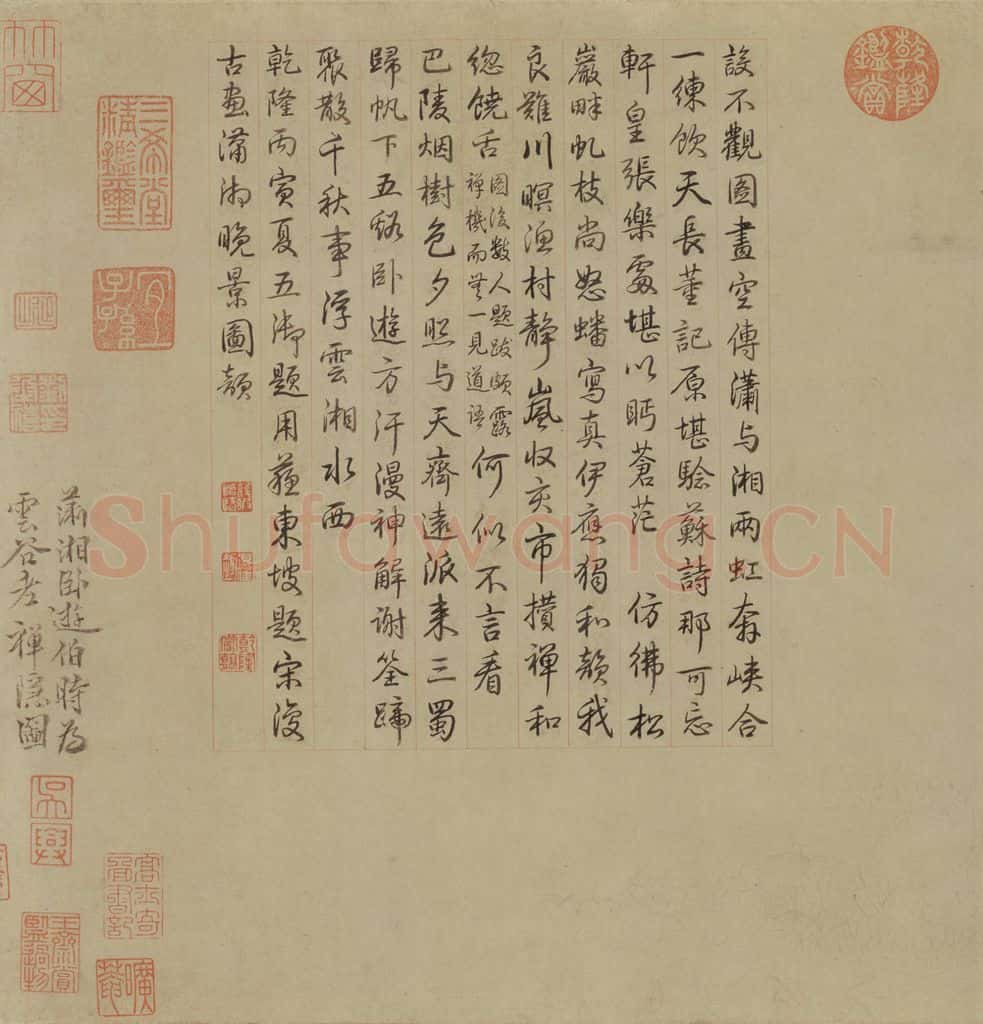 乾隆鑑賞
設不觀圖畫空傳瀟与湘兩虹奔峽合
一練飲天長董記原堪驗蘇詩那可忘
軒皇張樂處堪以眄蒼茫 仿彿松
巖畔虬枝尚怒蟠寫真伊應獨和韻我
良難川暝漁村静嵐收亥市攢禅和
總饒舌
圖後數人題跋頗露
禅機而無一見道語
何似不言看
巴陵烟樹色夕照与天齊遠派来三蜀
歸帆下五谿卧遊方汗漫神解谢筌蹄
聚散千秋事浮雲湘水西
乾隆丙寅夏五御題用蘇東坡題宋復
古畫瀟湘晚景圖韻
三希堂精鑑璽
宜子孫
瀟湘卧遊伯時為
雲谷老禅隱圖
吳興
Shufawang.CN